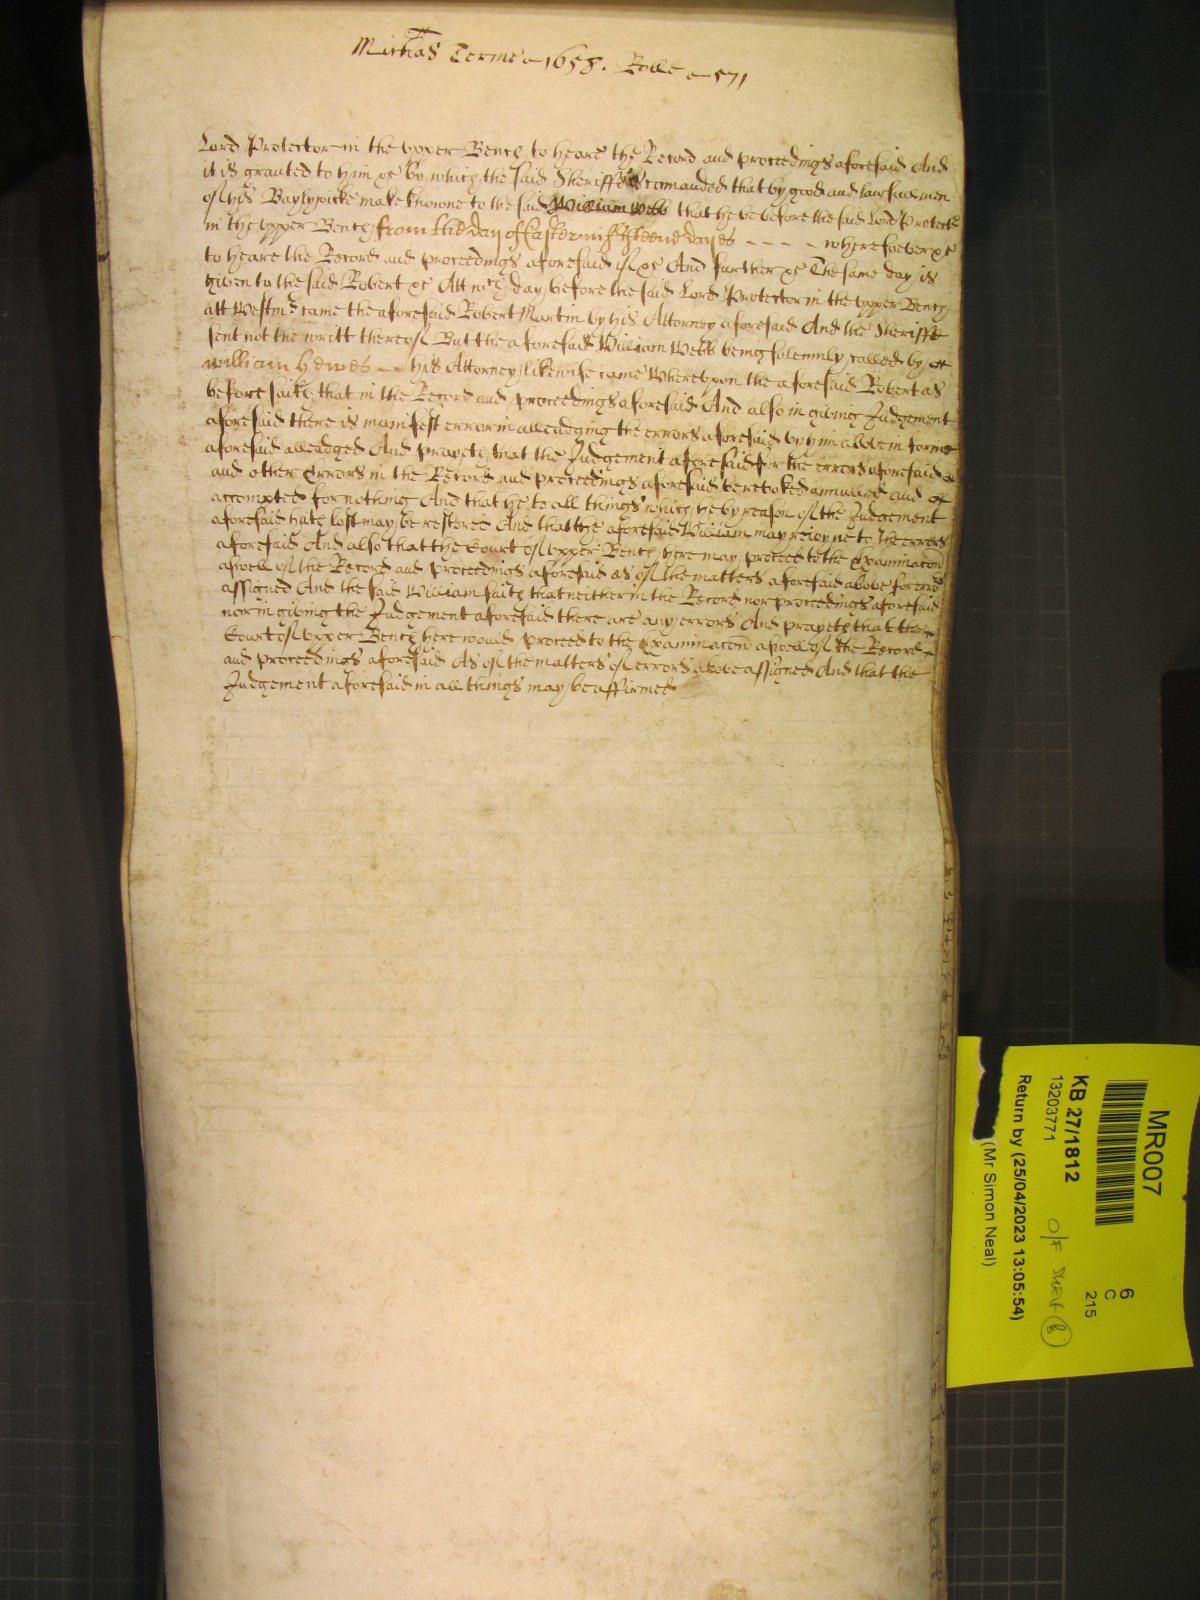 Michas Terme 1658. Rolle 571
Lord Protector in the upper Bench to heare the Record and proceedings aforesaid And
it is granted to him &c by which the said Sheriffe is comanded that by good and lawfull men
of his Baylywicke make knowne to the said William Webb that he be before the said Lord Protector
in the upper Bench from the day of Easter in fifteene dayes - - - - wheresoever &c
to heare the Record and proceedings aforesaid if &c And further &c The same day is
given to the said Robert &c Att wch day before the said Lord Protector in the upper Bench
att Westmr came the aforesaid Robert Martin by his Attorney aforesaid And the Sheriffe
sent not the writt thereof But the aforesaid William Webb being solemnly called by
William Hewes - - his Attorney likewise came Whereupon the aforesaid Robert as
before saith that in the Record and proceedings aforesaid And also in giving Judgement
aforesaid there is manifest error in alleadging the errors aforesaid by him above in forme
aforesaid alleadged And prayeth that the Judgement aforesaid for the errors aforesaid
and other Errors in the Record and proceedings aforesaid be revoked annulled and
accompted for nothing And that he to all things which he by reason of the Judgement
aforesaid hath lost may be restored And that the aforesaid William may rejoyne to the errors
aforesaid And also that the Court of upper Bench here may proceed to the Examinacon
aswell of the Record and proceedings aforesaid as of the matters aforesaid above for error
assigned And the said William saith that neither in the Record nor proceedings aforesaid
nor in giving the Judgement aforesaid there are any errors And prayeth that the
Court of upper Bench here would proceed to the Examinacon aswell of the Record
and proceedings aforesaid As of the matters of errors above assigned And that the
Judgement aforesaid in all things may be affirmed
MR007
KB 27/1812
13203771
Return by (25/04/2023 13:05:54)
(Mr Simon Neal)
6
C
215
O/F